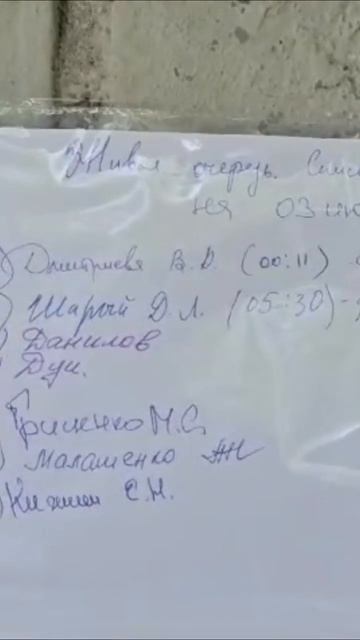 Живая очередь. Спис
на 03 ию
Дмитриева В.В. (00:11)
Шарый Д.Л. (05:30) -
Данилов
Дуц.
Гриценко М.С.
Малашенко
С.Н.